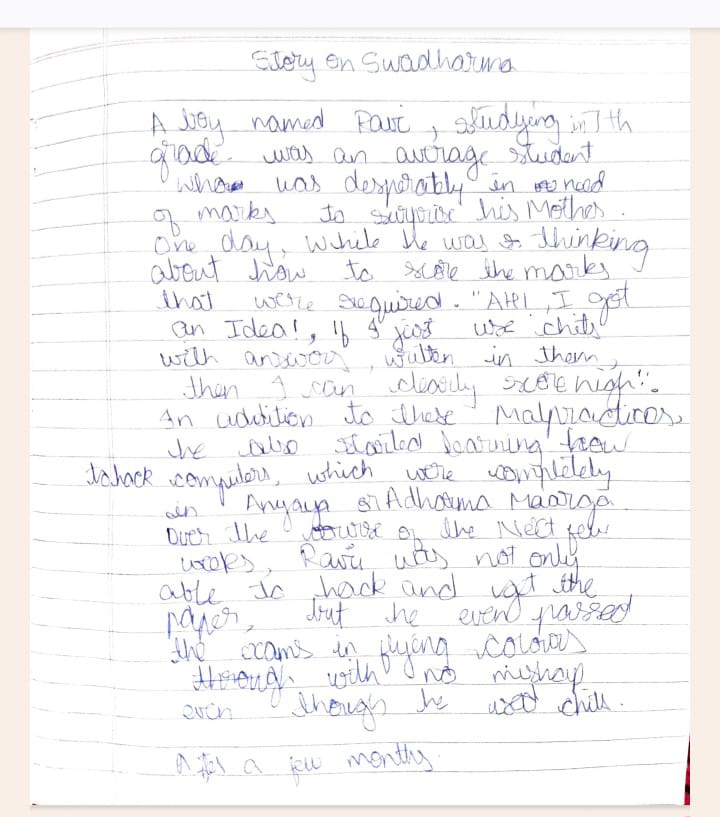 Story on Swadharma
A boy named Ravi, studying in 7th
grade was an average student
who was desperately in need
of marks to surprise his Mother.
One day, while he was thinking
about how to score the marks
that were required. "AH!, I got
an Idea!, If I just use chits
with answers, written in them,
then I can clearly score high!".
In addition to these Malpractices,
he also started learning how
to hack computers, which were completely
in Anyaya or Adharma Maarga.
Over the course of the Next few
weeks, Ravi was not only
able to hack and get the
paper, but he even passed
the exams in flying colours
through with no mishap
even though he used chits.
After a few months